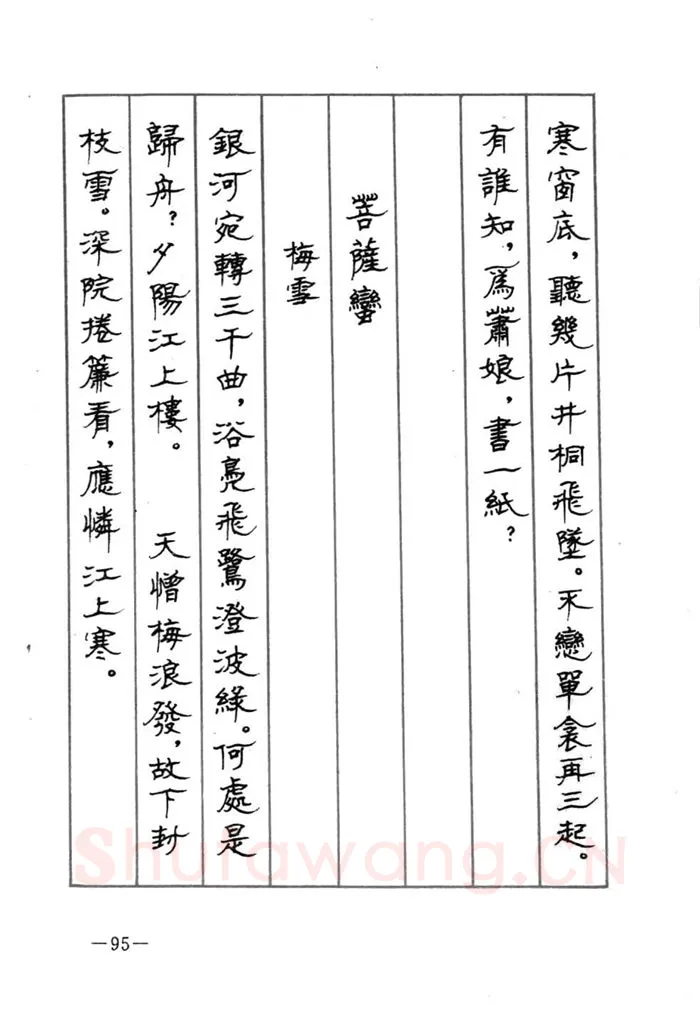 寒窗底，聽幾片井桐飛墜。不戀單衾再三起。
有誰知，爲蕭娘，書一紙？
菩薩蠻
梅雪
銀河宛轉三千曲，浴鳧飛鷺澄波綠。何處是
歸舟？夕陽江上樓。 天憎梅浪發，故下封
枝雪。深院捲簾看，應憐江上寒。
Shufawang.CN
—95—